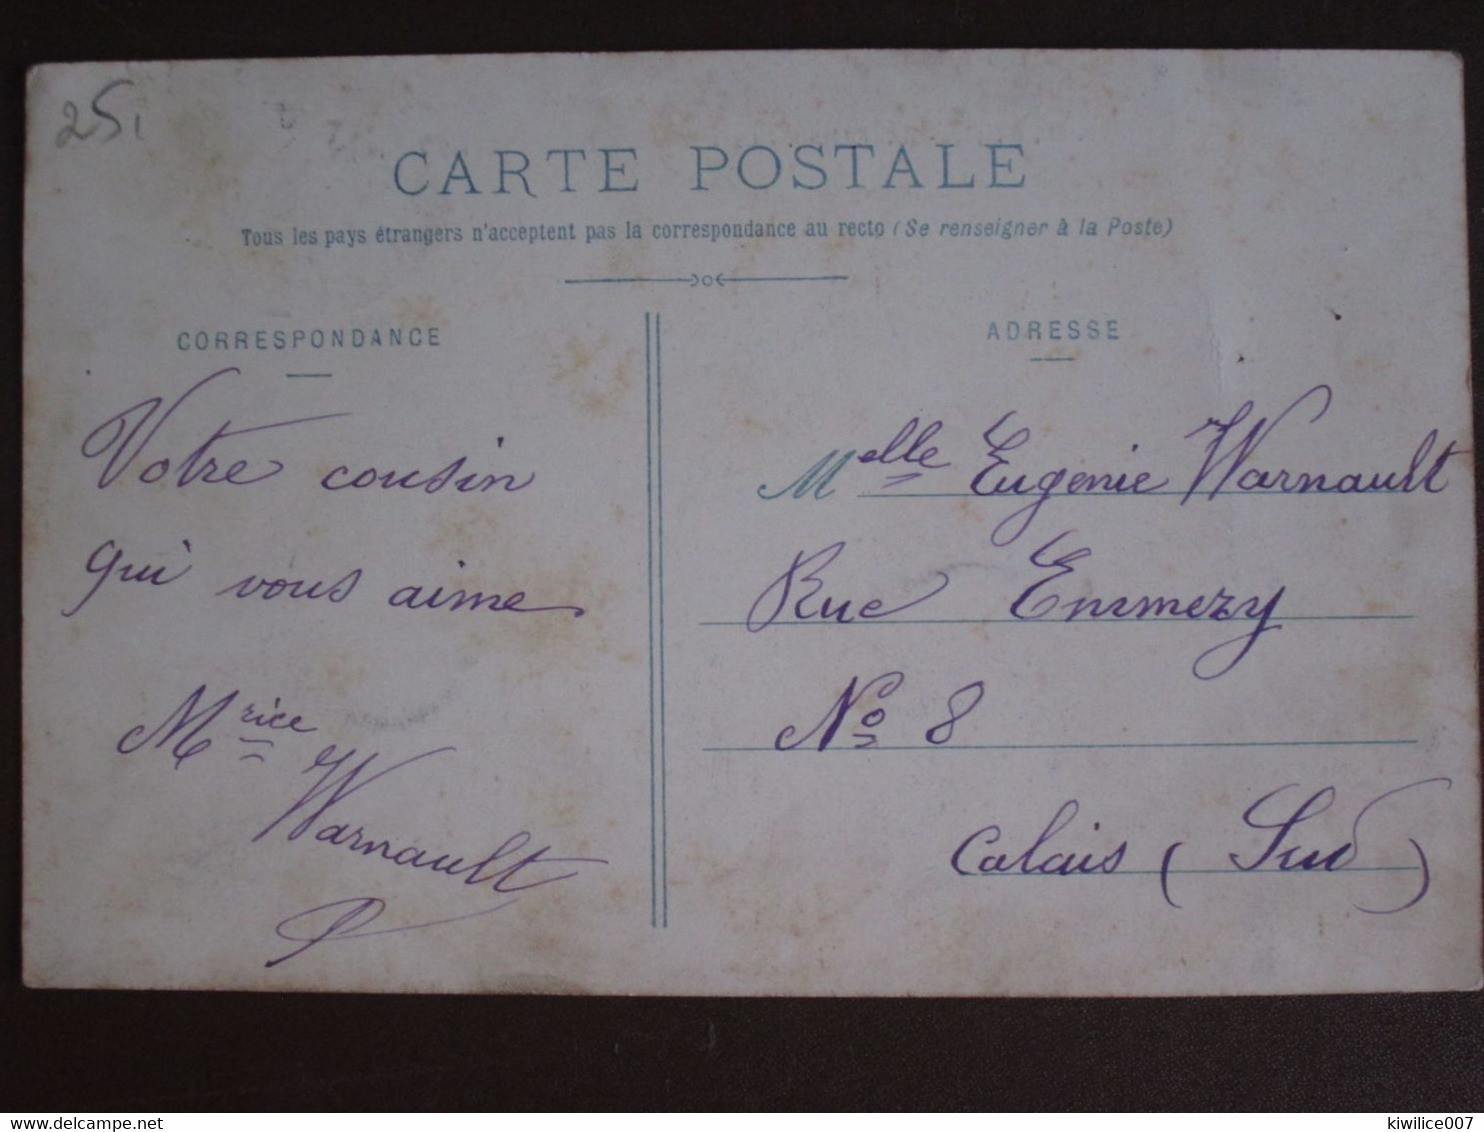 25
CARTE POSTALE
Tous les pays étrangers n'acceptent pas la correspondance au recto (Se renseigner à la Poste)
CORRESPONDANCE
Votre cousin
qui vous aime
Mrice
Warnault
ADRESSE
Melle Eugenie Warnault
Rue Emmezy
No 8
Calais (Sud)
kiwilice007